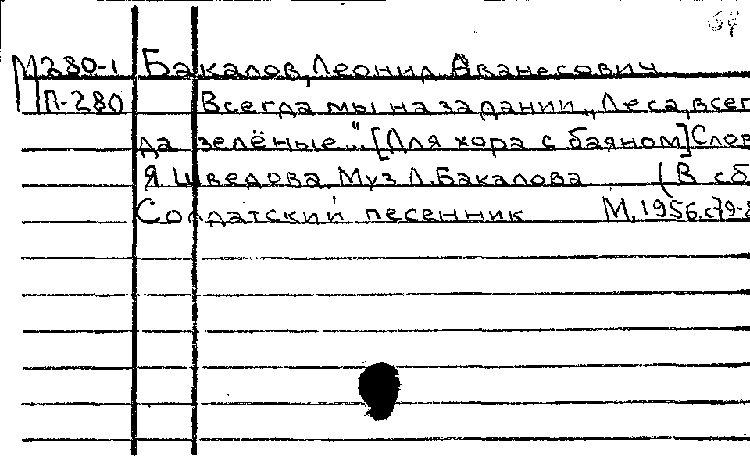 64
М280-1 Бакалов, Леонид Аванесович
П-280 Всегда мы на задании „Леса, всег
да зелёные". [Для хора с баяном] Слов
Я. Шведова. Муз Л. Бакалова (В сб
Солдатский песенник М, 1956. с79-8